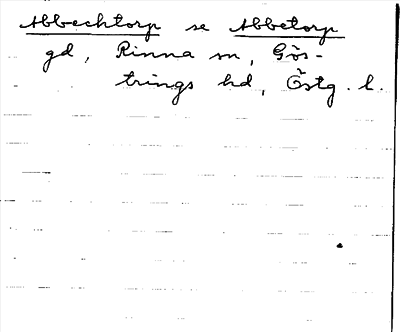 Abbechtorp se Abbetorp
gd, Rinna sn, Gös-
trings hd, Östg. l.